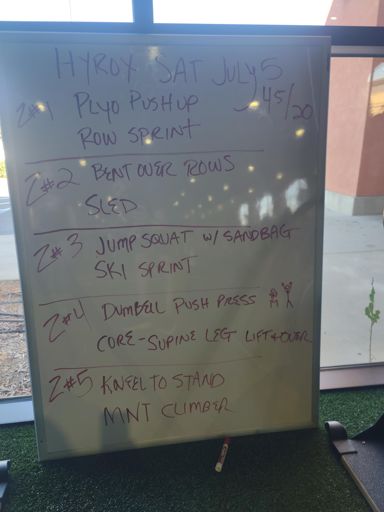 HYROX SAT JULY 5
Z#1 PLYO PUSHUP 45/20
ROW SPRINT
Z#2 BENT OVER ROWS
SLED
Z#3 JUMP SQUAT W/ SANDBAG
SKI SPRINT
Z#4 DUMBELL PUSH PRESS
CORE-SUPINE LEG LIFT+OVER
Z#5 KNEEL TO STAND
MNT CLIMBER